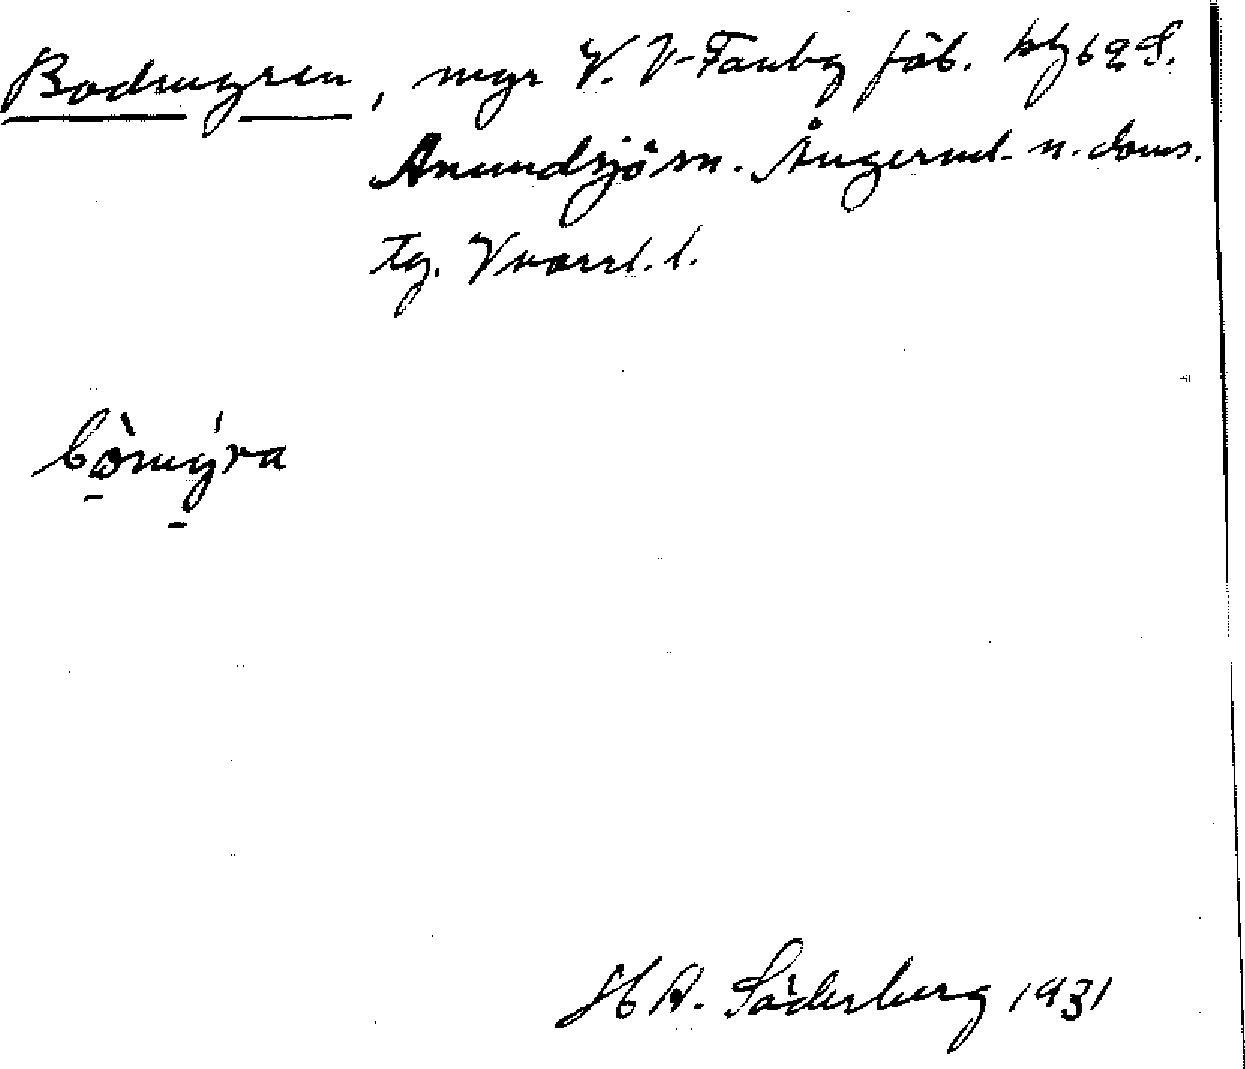 Bodmyren, myr V. V-Tanbg fäb. kbl 62 S.
Anundsjö sn. Ångerml. n. doms.
tg. Vnorrl. l.
bòmýra
H A. Söderberg 1931